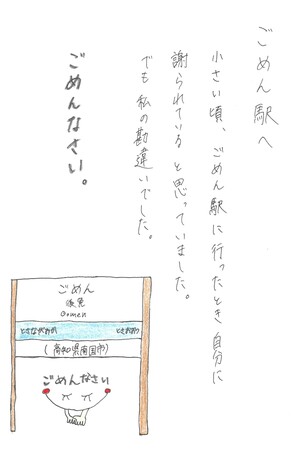 ごめん駅へ
小さい頃、ごめん駅に行ったとき自分に
謝られていると思っていました。
でも私の勘違いでした。
ごめんなさい。
ごめん
後免
Gomen
とさながおか
とさおおつ
(高知県南国市)
ごめんなさい